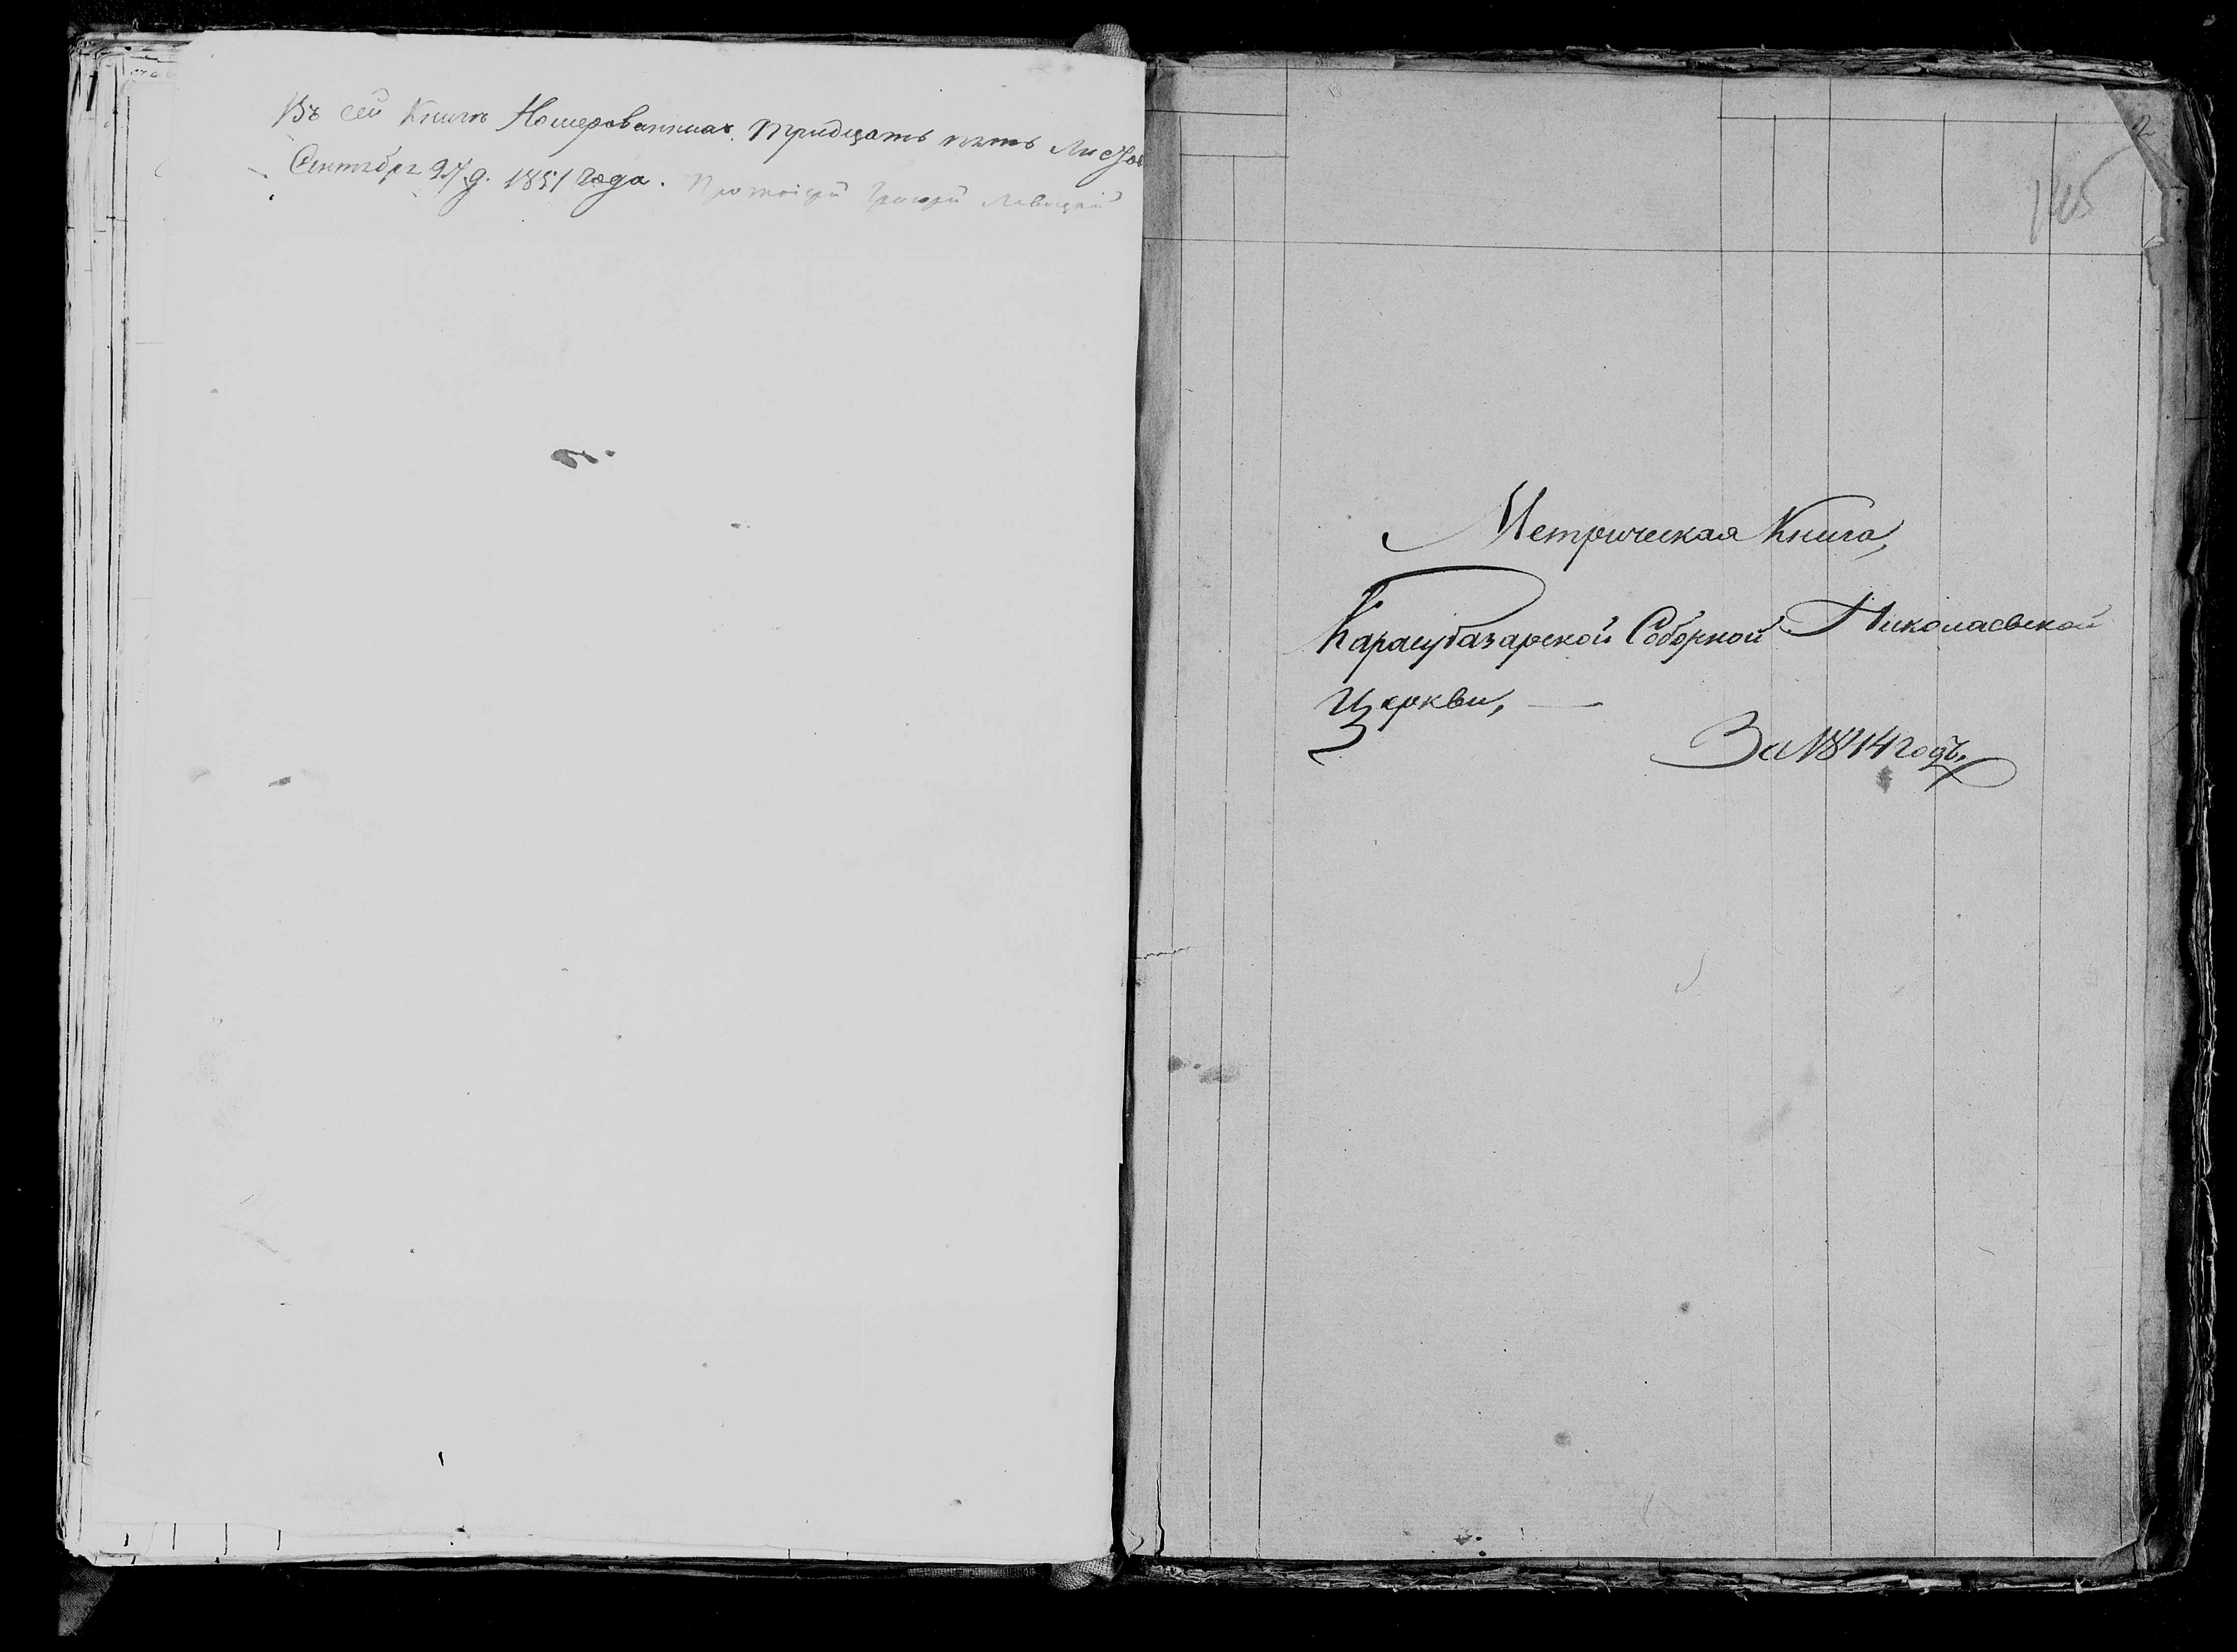 Въ сей Книгѣ Номерованныхъ тридцать пять Листовъ
Сентября 27 д. 1851 года. Протоіерей Григорій Левицкій
2
145
Метрическая Книга,
Карасубазарской Соборной Николаевской
Церкви,
За 1844 годъ,